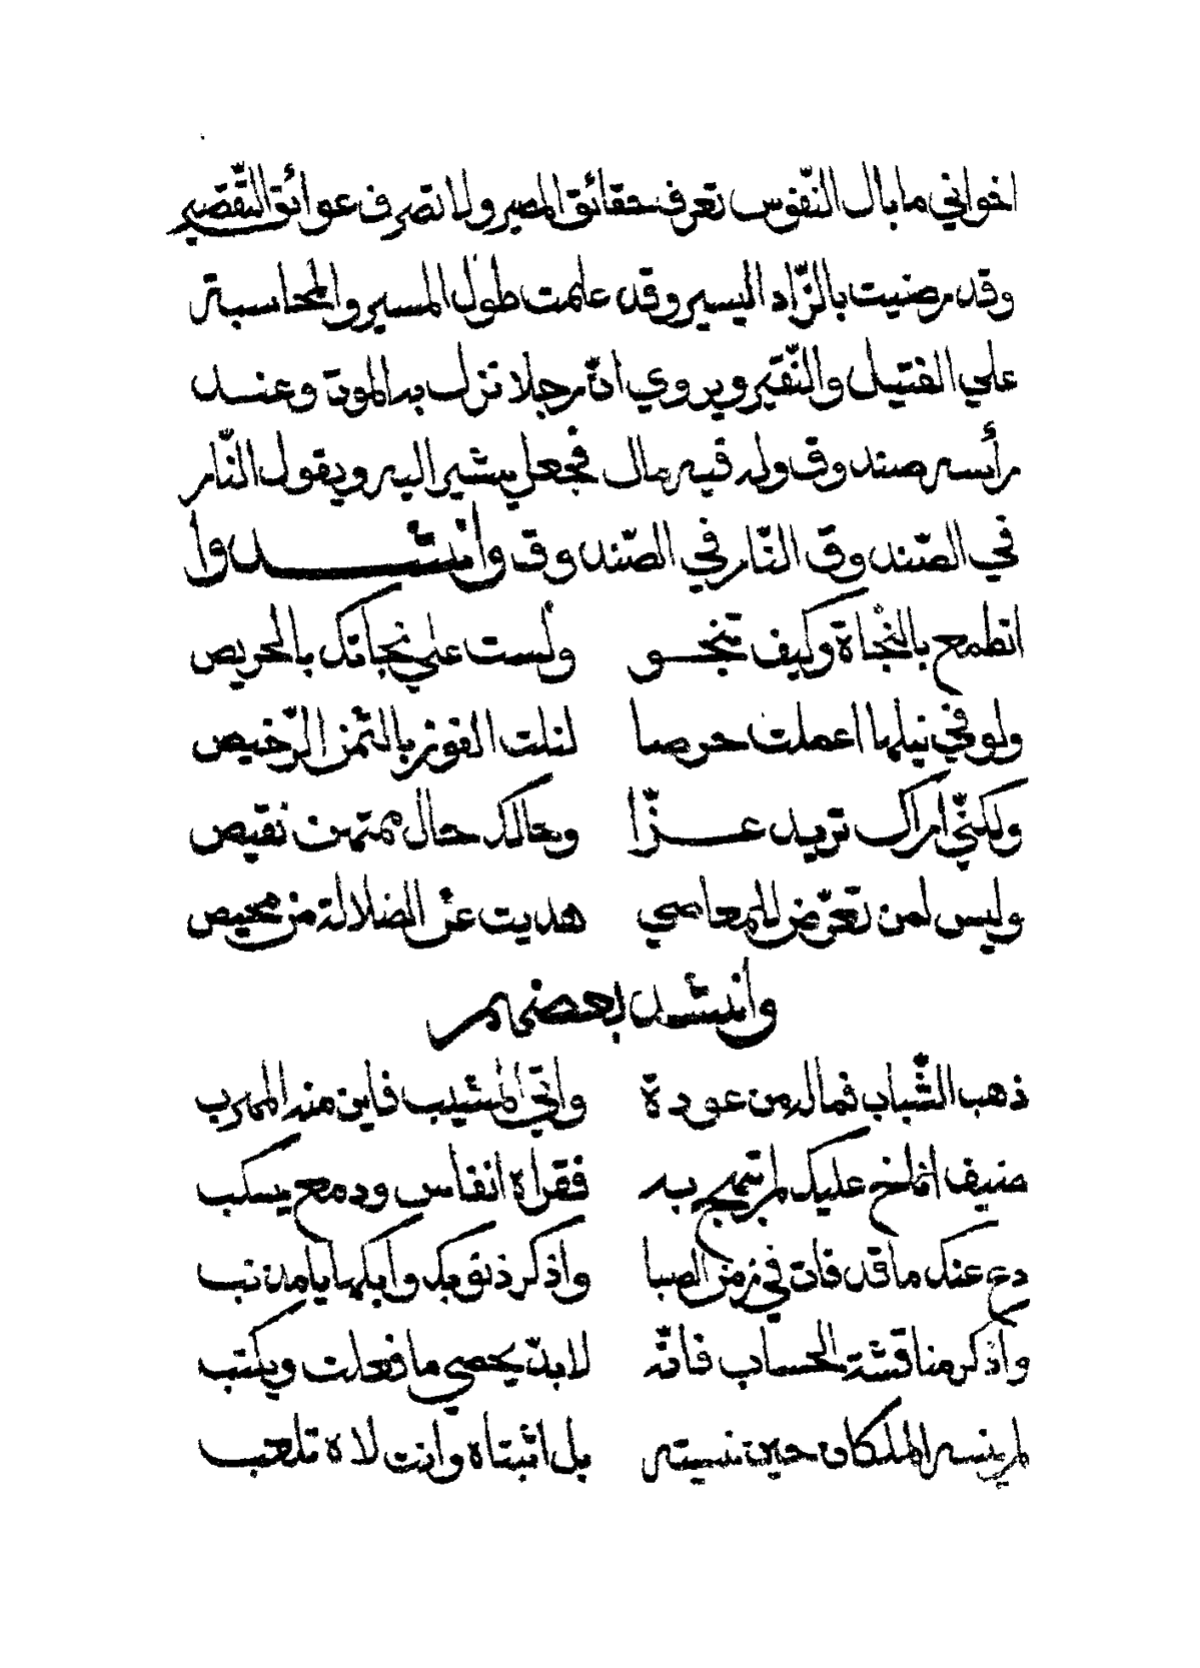 اخواني ما بال النّفوس تعرف حقائق المصير ولا تصرف عوائق التّقصير
وقد رضيت بالزّاد اليسير وقد علمت طول المسير والمحاسبة
علي الفتيل والنّقير ويروي انّ رجلا نزل به الموت وعند
رأسه صندوق وله فيه مال فجعل يشير اليه ويقول النّار
في الصّندوق النّار في الصّندوق وانشدوا
اتطمع بالنّجاة وكيف تنجو ولست علي نجاتك بالحريص
ولو في نيلها اعملت حرصا لنلت الفوز بالثمن الرّخيص
ولكنّي اراك تريد عزّا وحالك حال ممتهن نقيص
وليس لمن تعرّض للمعاصي هديت عن الضلالة من محيص
وأنشد بعضهم
ذهب الشّباب فما له من عودة واتي المشيب فاين منه المهرب
ضيف المّ عليك لم تسمح به فقراه انفاس ودمع يسكب
دع عنك ما قد فات في زمن الصبا واذكر ذنوبك وابكها يا مذنب
واذكر مناقشة الحساب فانّه لا بدّ يحصي ما فعلت ويكتب
لم ينسه الملكان حين نسيته بل اثبتاه وانت لاه تلعب